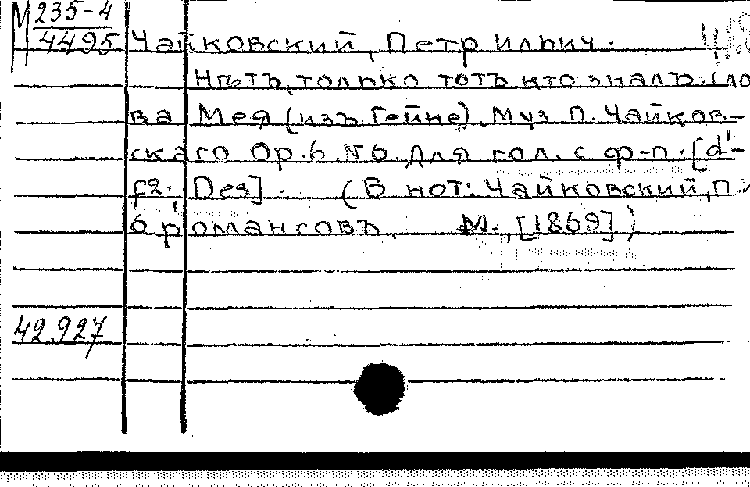 М 235-4
4495
Чайковский, Петр Ильич.
Нѣтъ, только тотъ кто зналъ. Сло
ва Мея (изъ Гейне). Муз П. Чайков-
скаго Op. 6. № 6. Для гол. с ф-п. [d'-
f2; Des]. (В нот: Чайковский, П.
6 романсовъ. М., [1869])
42.927